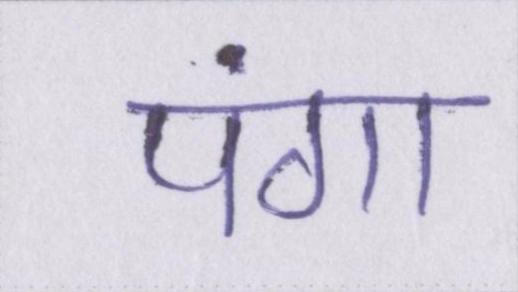 पंगा